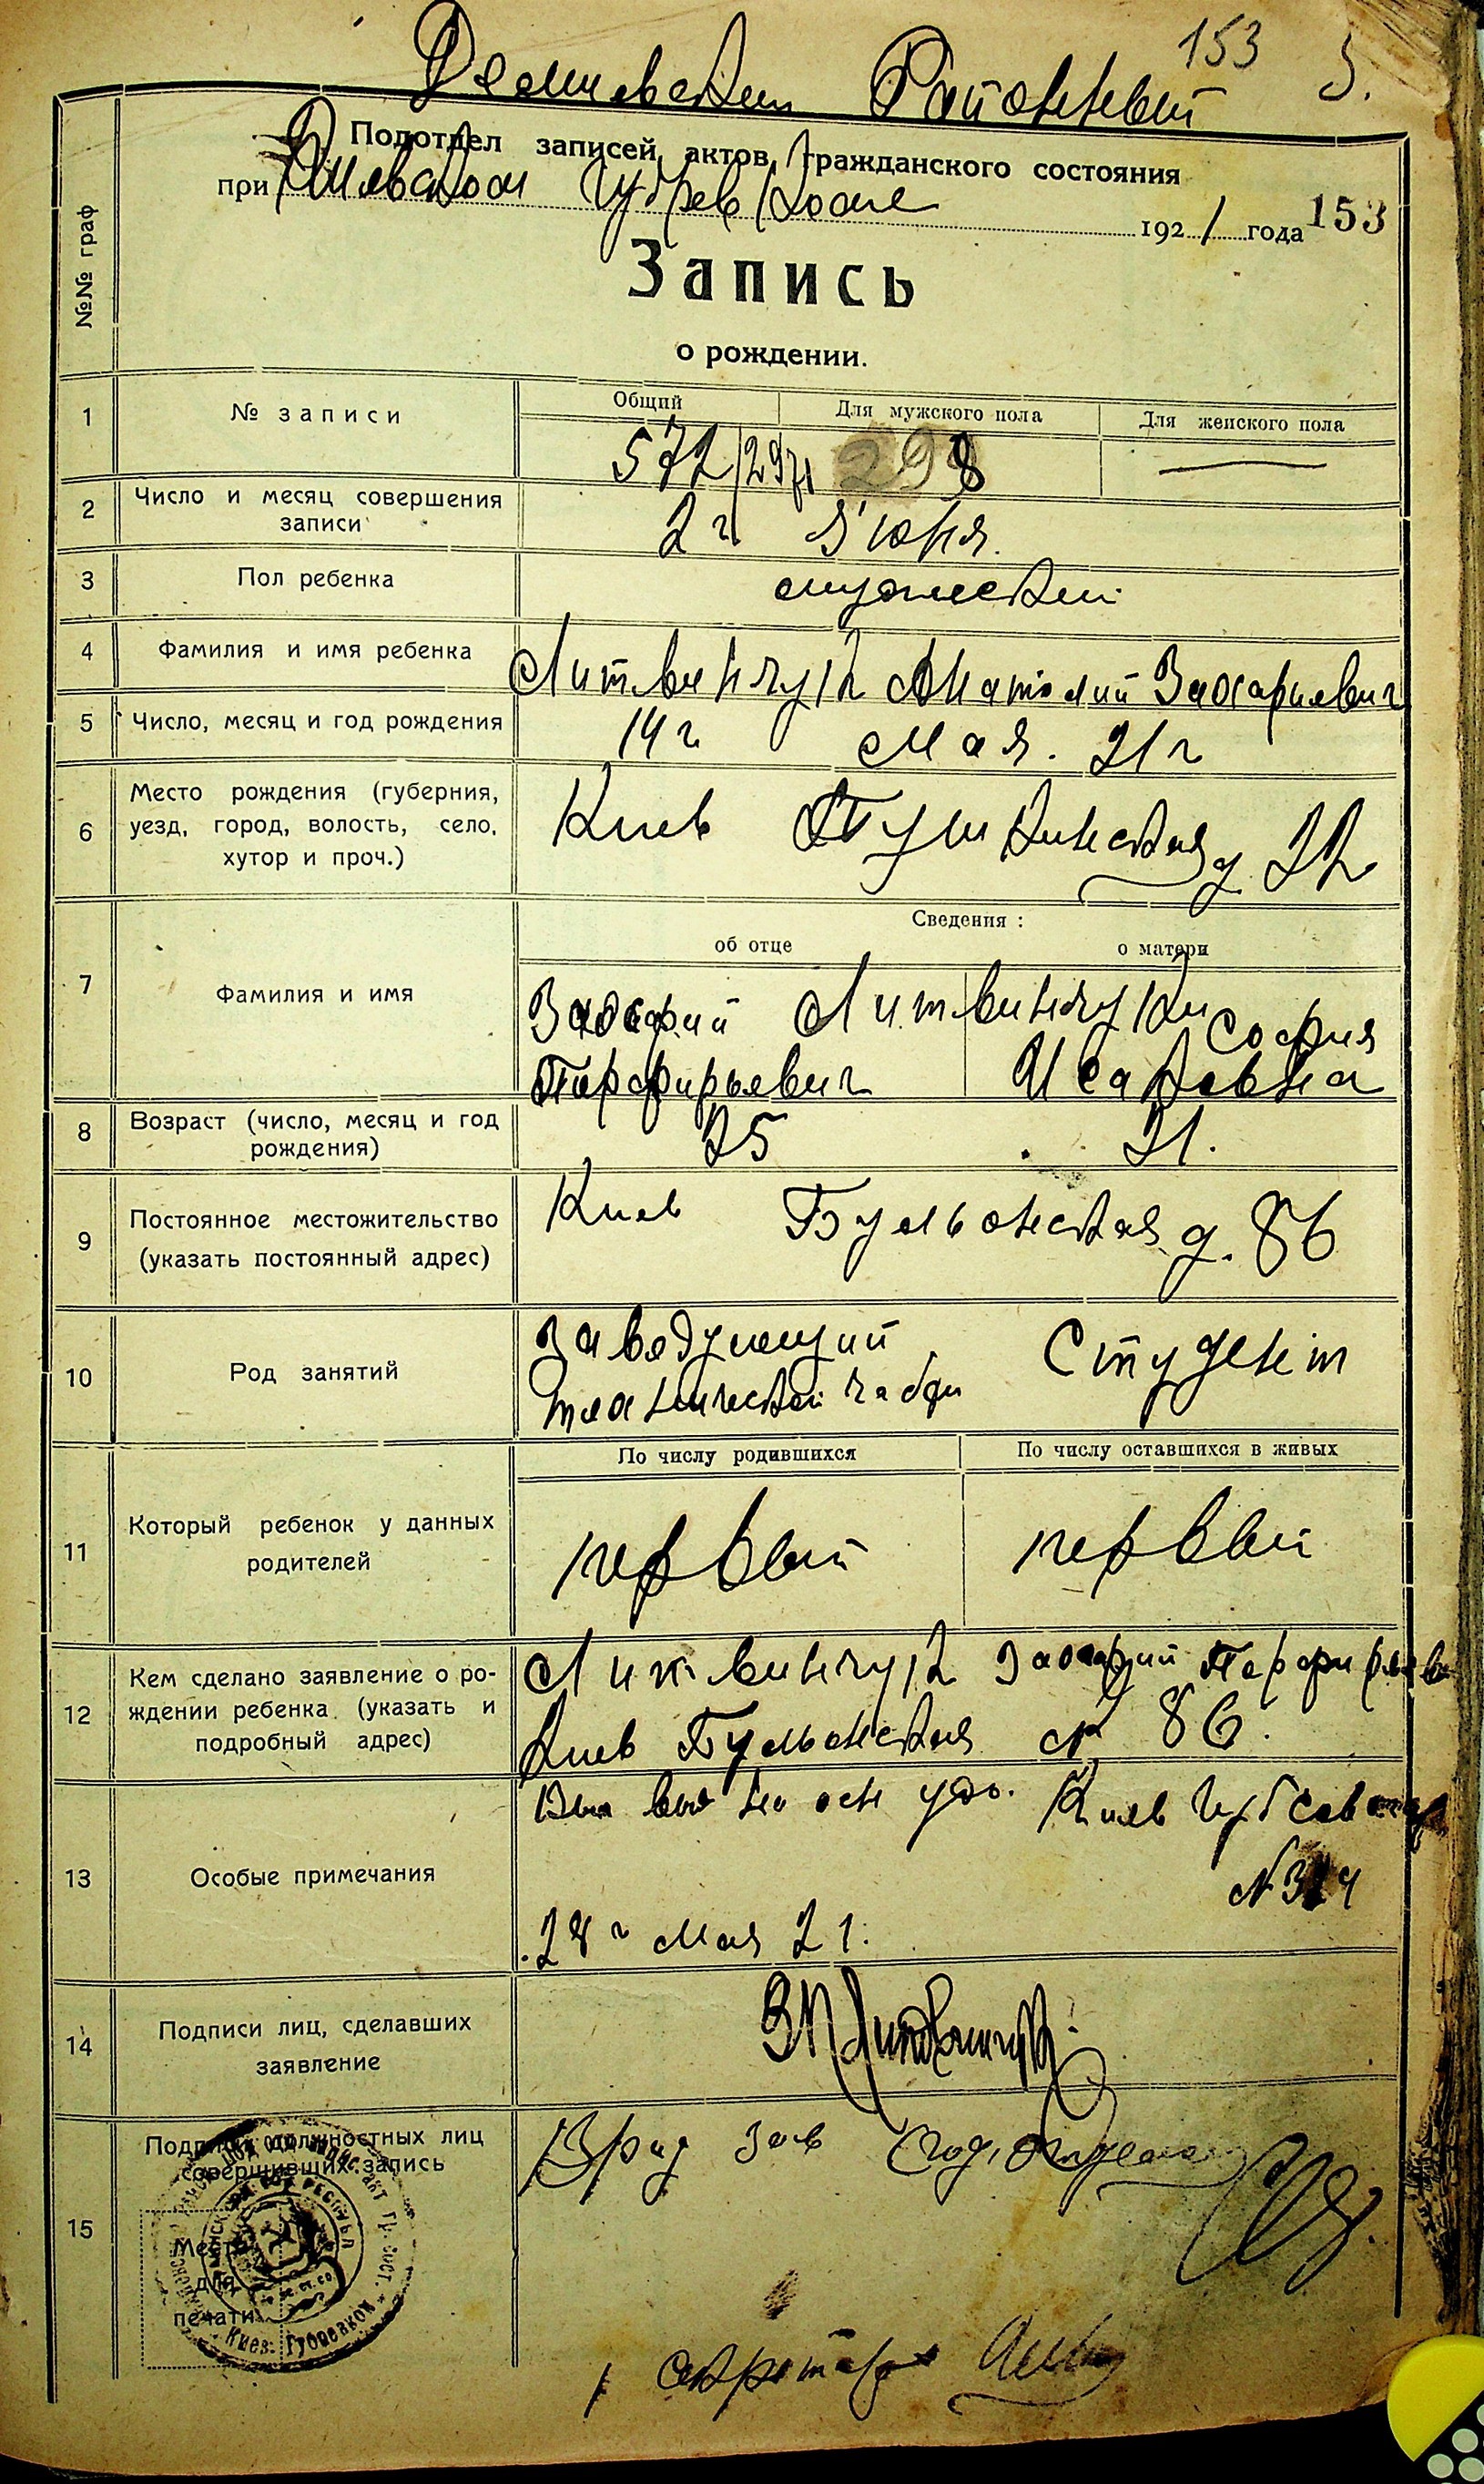 153
Районный
Подотдел записей актов гражданского состояния
при Киевском Губревкоме 1921 года 153
Запись
о рождении.
№№ граф
1 № записи
Общий Для мужского пола Для женского пола
572 298 —
2 Число и месяц совершения записи
2 го Июня
3 Пол ребенка
мужеский
4 Фамилия и имя ребенка
Литвинчук Анатолий Захариевич
5 Число, месяц и год рождения
14 го Мая. 21 г
6 Место рождения (губерния, уезд, город, волость, село, хутор и проч.)
Киев Пушкинская д. 22
Сведения:
об отце о матери
7 Фамилия и имя
Захарий Литвинчуки София
Парфирьевич Исаковна
8 Возраст (число, месяц и год рождения)
25 21.
9 Постоянное местожительство (указать постоянный адрес)
Киев Бульонская д. 86
10 Род занятий
Заведующий Студент
11 Который ребенок у данных родителей
По числу родившихся По числу оставшихся в живых
первый первый
12 Кем сделано заявление о рождении ребенка (указать и подробный адрес)
Литвинчук Захарий
Киев Бульонская № 86.
13 Особые примечания
на осн удо. Киев
28 го Мая 21.
14 Подписи лиц, сделавших заявление
ЗПЛитвинчук
15 Подписи должностных лиц совершивших запись
Врид Зав Подотделом
Место для печати
Киев. Губревком
секретарь